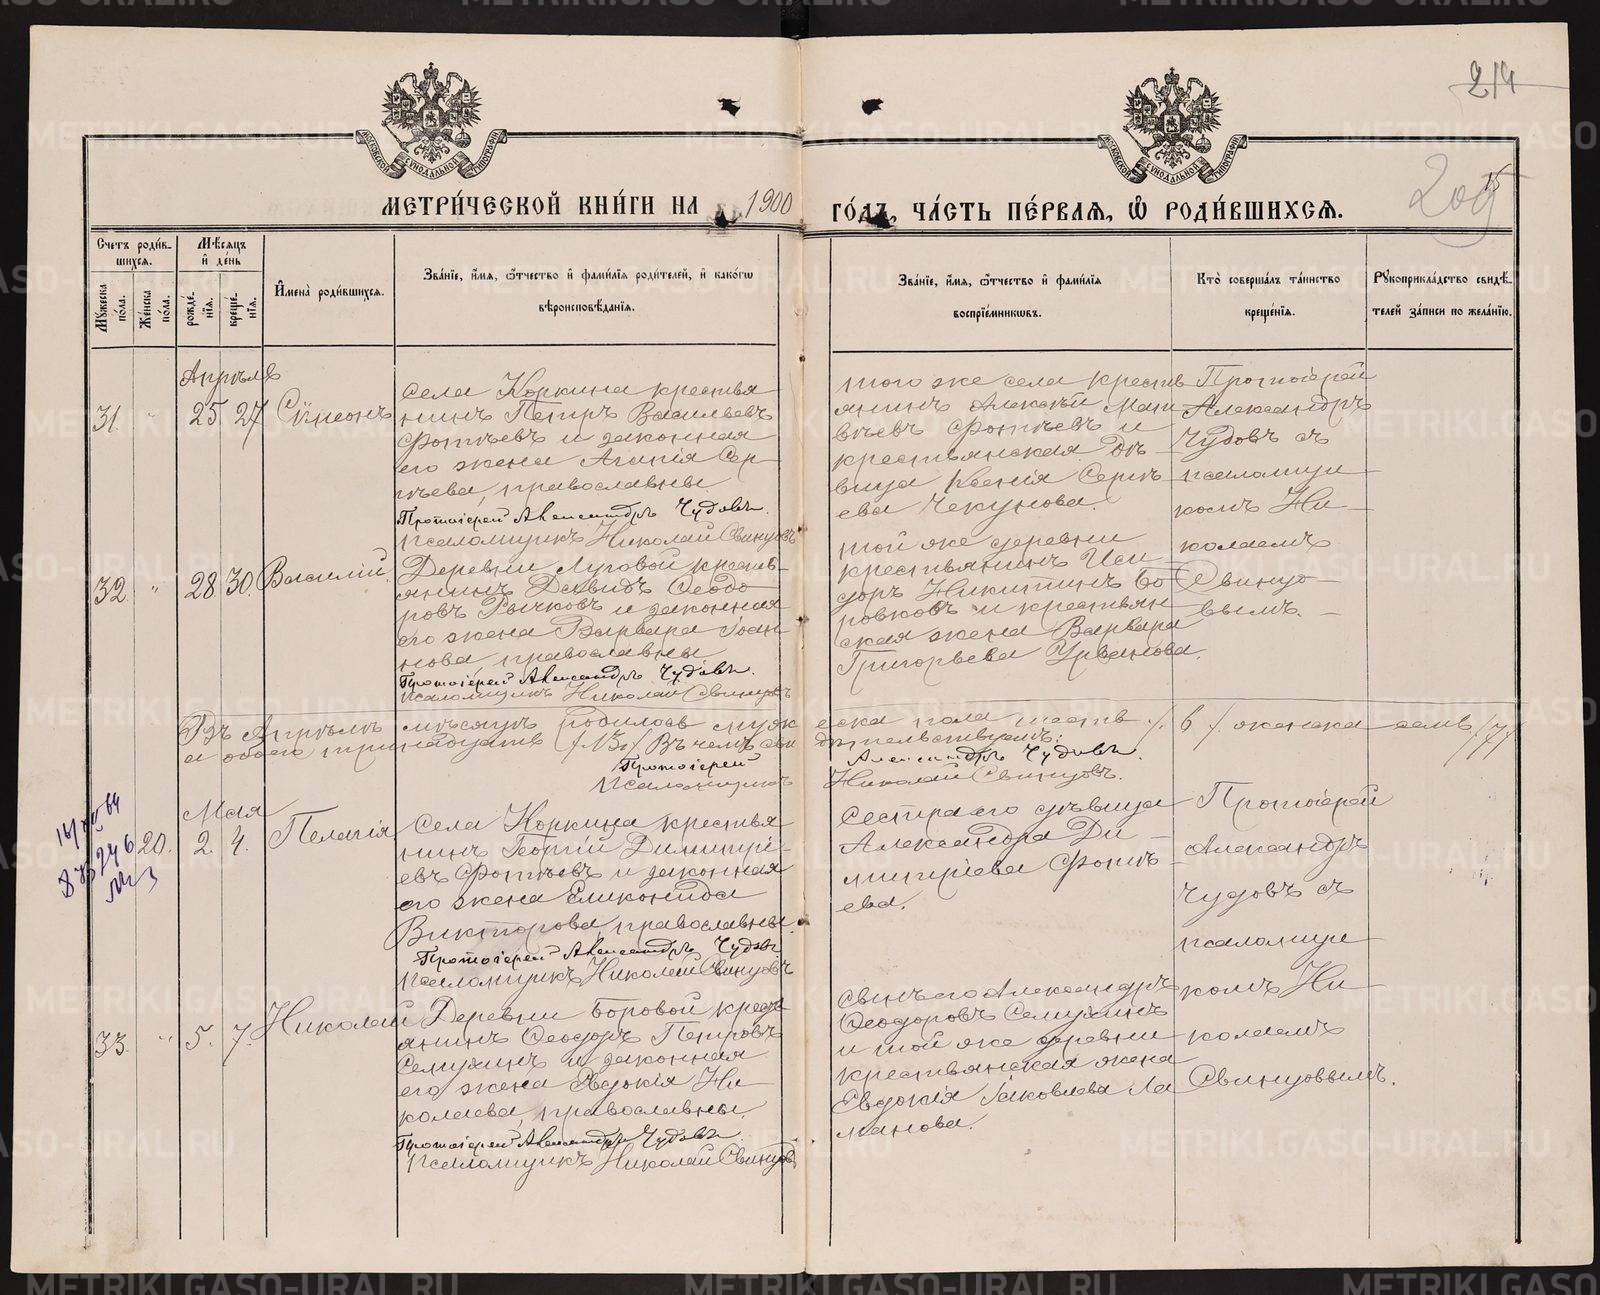 214
205
МОСКОВСКОЙ СУНОДАЛЬНОЙ ТИПОГРАФІИ
МОСКОВСКОЙ СУНОДАЛЬНОЙ ТИПОГРАФІИ
МЕТРИ́ЧЕСКОЙ КНИ́ГИ НА 1900 ГО́ДЪ, ЧА́СТЬ ПЕ́РВАЯ, Ѡ҆ РОДИ́ВШИХСЯ.
Счетъ роди́в-
шихся.
Мꙋ́жеска по́ла.
Же́нска по́ла.
Мѣ́сяцъ
и҆ де́нь
рожде́-
нїя.
креще́-
нїя.
И҆мена̀ роди́вшихся.
Зва́нїе, и҆́мя, ѻ҆́тчество и҆ фами́лїя роди́телей, и҆ како́гѡ
вѣроисповѣ́данїя.
Зва́нїе, и҆́мя, ѻ҆́тчество и҆ фами́лїя
воспрїе́мникѡвъ.
Кто̀ соверша́лъ та́инство
креще́нїя.
Рꙋкоприкла́дство свидѣ́-
телей за́писи по жела́нїю.
Апрѣля
31. " 25. 27 Сѵмеонъ
Села Коркина крестья
нинъ Петръ Васильевъ
Фотѣевъ и законная
его жена Агапія Сер-
гѣева, православны.
Протоіерей Александръ Чудовъ.
Псаломщикъ Николай Свинцовъ
того же села крестъ
янинъ Алексѣй Мат
вѣевъ Фотѣевъ и
крестьянская дѣ-
вица Ксенія Серг
ева Чекунова.
Протоіерей
Александръ
Чудовъ съ
псаломщи
комъ Ни-
колаемъ
Свинцо-
вымъ.
32. " 28. 30. Василій.
Деревни Луговой кресть-
янинъ Давидъ Ѳеодо
ровъ Рычковъ и законная
его жена Варвара Іоан-
нова, православны
Протоіерей Александръ Чудовъ.
Псаломщикъ Николай Свинцовъ
той же деревни
крестьянинъ Иси
доръ Никитинъ Бо
ровковъ и крестьян
ская жена Варвара
Григорьева Урванова.
Въ Апрѣлѣ мѣсяцѣ родилось муж еска пола шесть /. 6 /. женска семь /7/
а обоего тринадцать /.13./ Въ чемъ сви дѣтельствуемъ:
Протоіерей Александръ Чудовъ.
Псаломщикъ Николай Свинцовъ.
Мая
20. 2. 4. Пелагія
Села Коркина крестья
нинъ Георгій Димитрі-
евъ Фотѣевъ и законная
его жена Еликонида
Викторова, православны.
Протоіерей Александръ Чудовъ
Псаломщикъ Николай Свинцовъ
Сестра его дѣвица
Александра Ди-
митріева Фотѣ-
ева.
Протоіерей
Александръ
Чудовъ съ
псаломщи
комъ Ни-
колаемъ
Свинцовымъ.
33. " 5. 7. Николай
Деревни Боровой кресть
янинъ Ѳеодоръ Петровъ
Семухинъ и законная
его жена Евдокія Ни-
колаева, православны.
Протоіерей Александръ Чудовъ.
Псаломщикъ Николай Свинцовъ
Сынъ его Александръ
Ѳеодоровъ Семухинъ
и той же деревни
крестьянская жена
Евдокія Іаковлева Ла
манова.
METRIKI.GASO-URAL.RU